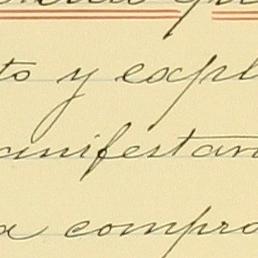 to y expl
anifestan
a compro